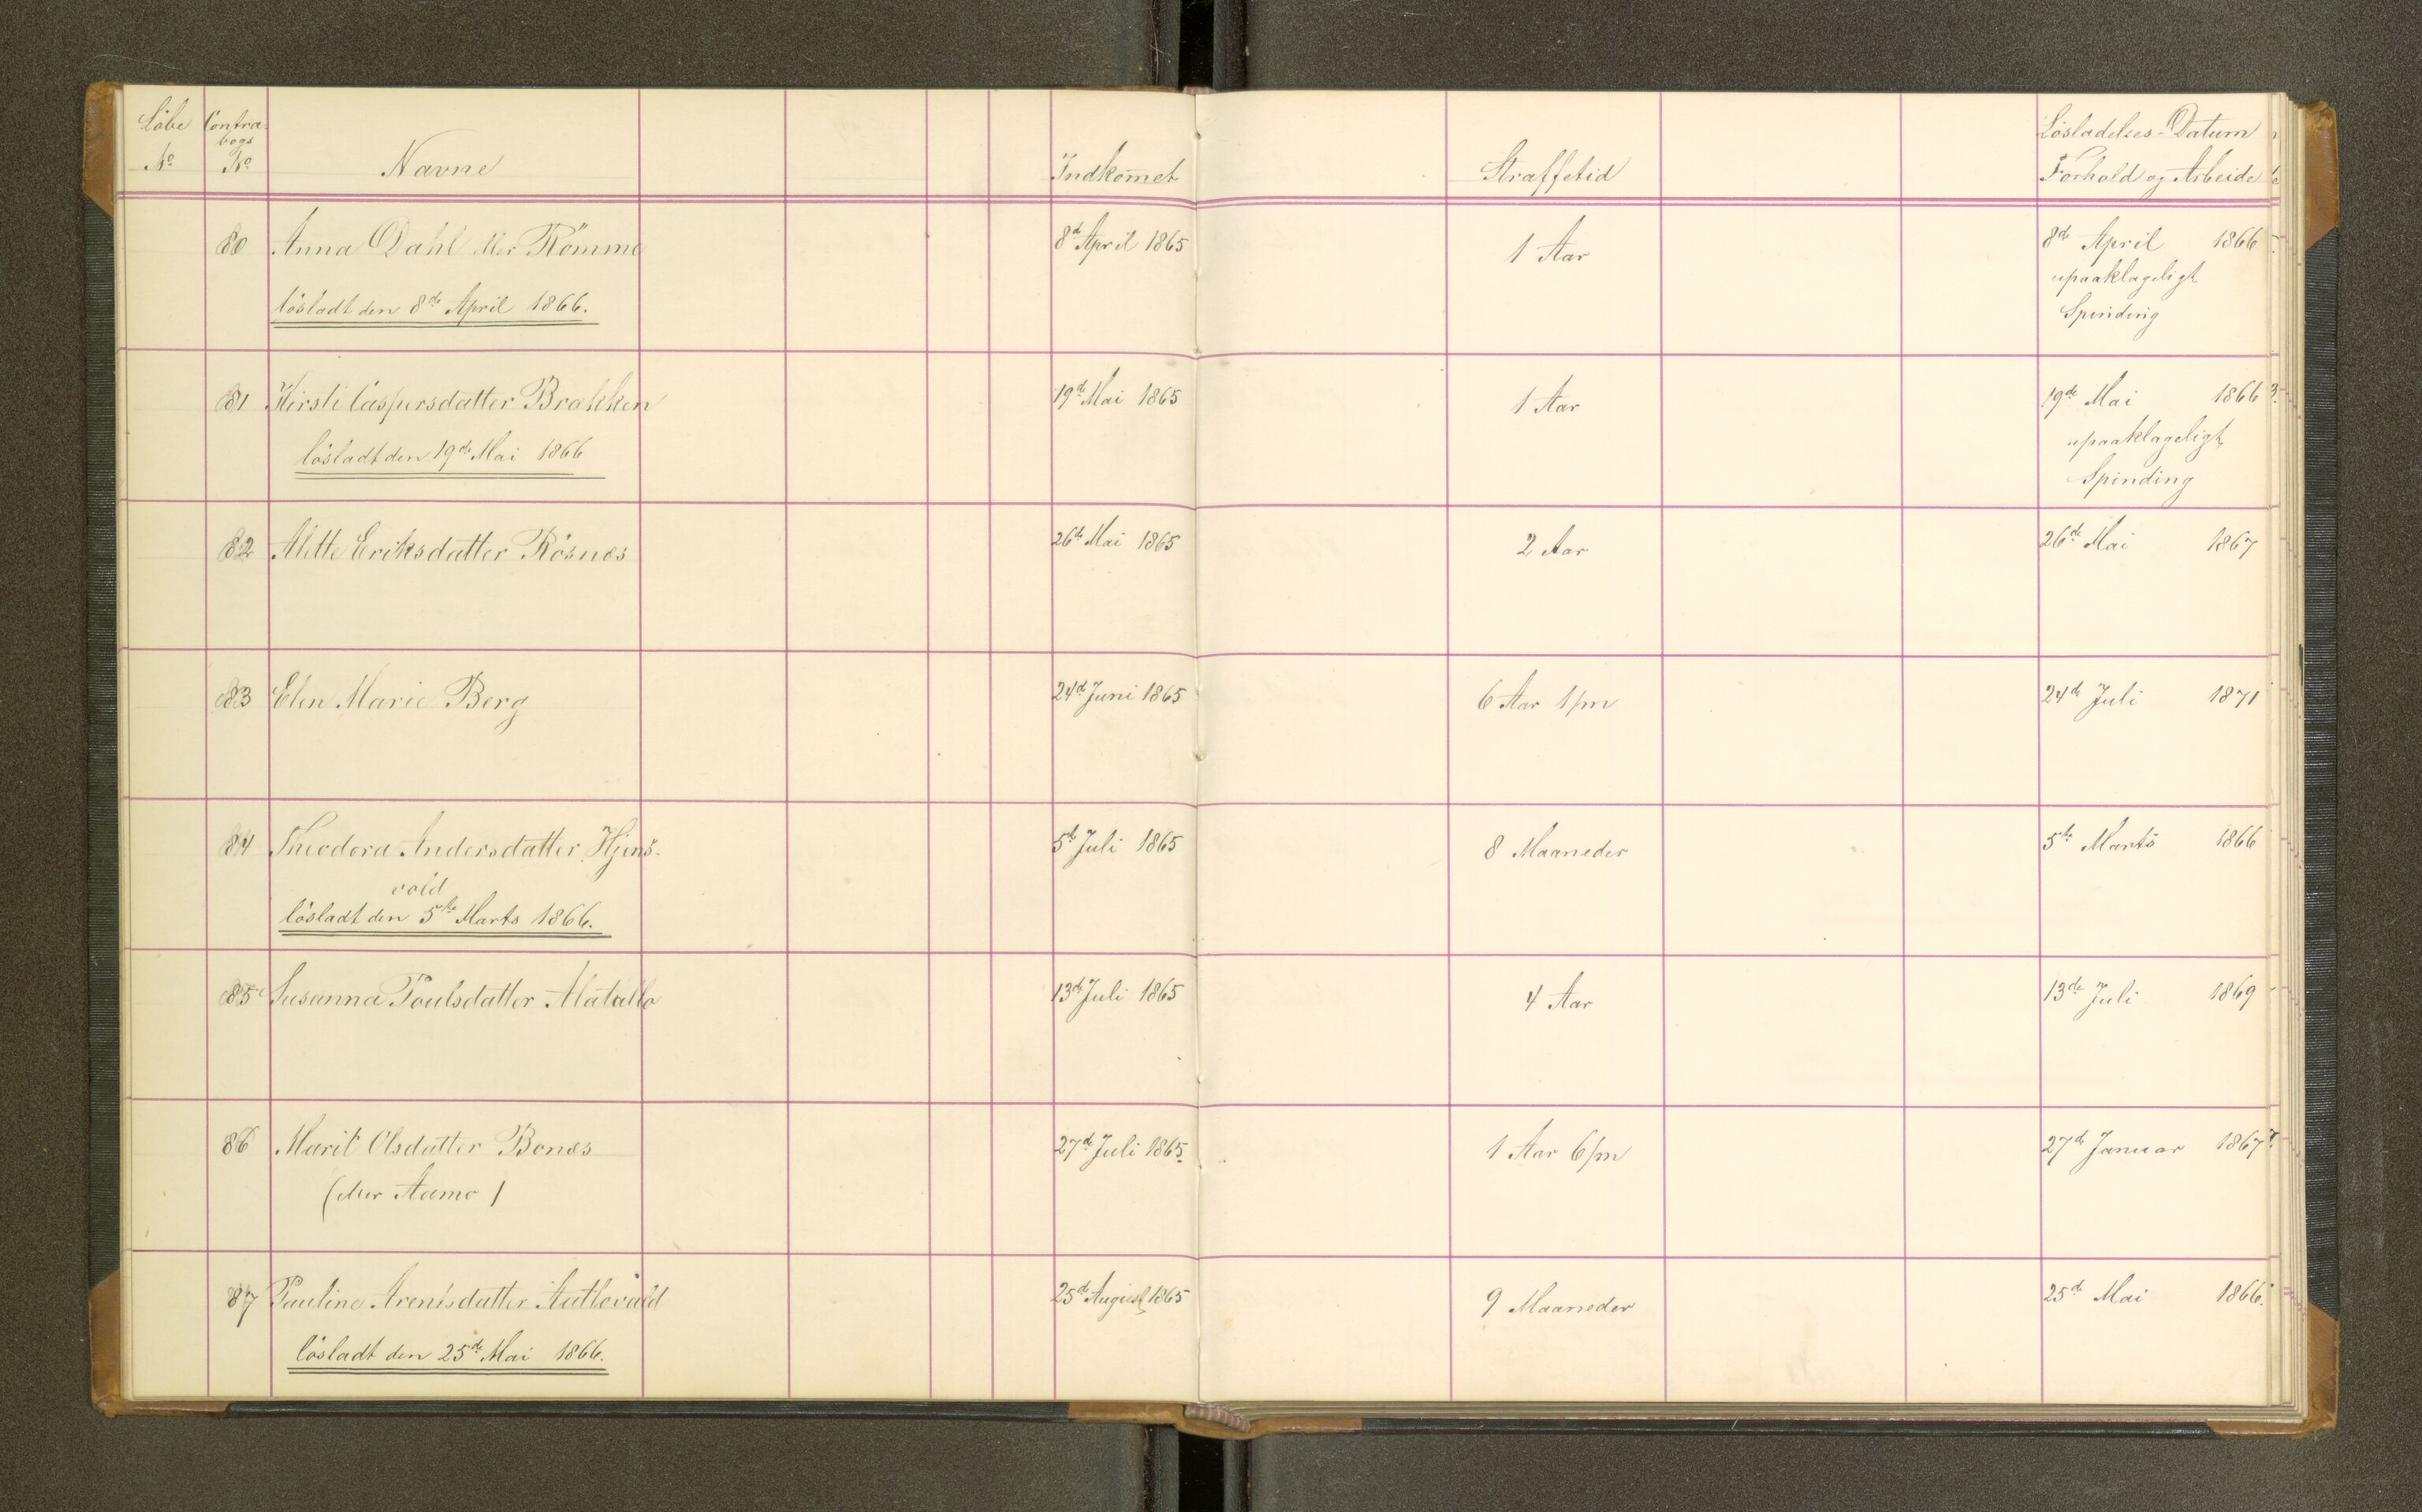 Löbe
No
Contra-
bogs
No
Navne
Indkomet
Straffetid
Lösladelses-Datum
Forhold og Arbeide
80 Anna Dahl eller Römme 8de April 1865 1 Aar 8de April 1866
upaaklageligt
lösladt den 8de April 1866. Spinding
81 Kirsti Caspersdatter Brækken 19de Mai 1865 1 Aar 19de Mai 1866
upaaklageligt
lösladt den 19de Mai 1866 Spinding
82 Alette Eriksdatter Rösnes 26de Mai 1865 2 Aar 26de Mai 1867
83 Elen Marie Berg 24de Juni 1865 6 Aar 1/m 24de Juli 1871
84 Theodora Andersdatter Hjems- 5te Juli 1865 8 Maaneder 5te Marts 1866
vold
lösladt den 5te Marts 1866.
85 Susanna Poulsdatter 13de Juli 1865 4 Aar 13de Juli 1869
86 Marit Olsdatter Bones 27de Juli 1865. 1 Aar 6/m 27de Januar 1867
(eller Aamo)
87 Pauline Arentsdatter 25de August 1865 9 Maaneder 25de Mai 1866.
lösladt den 25de Mai 1866.